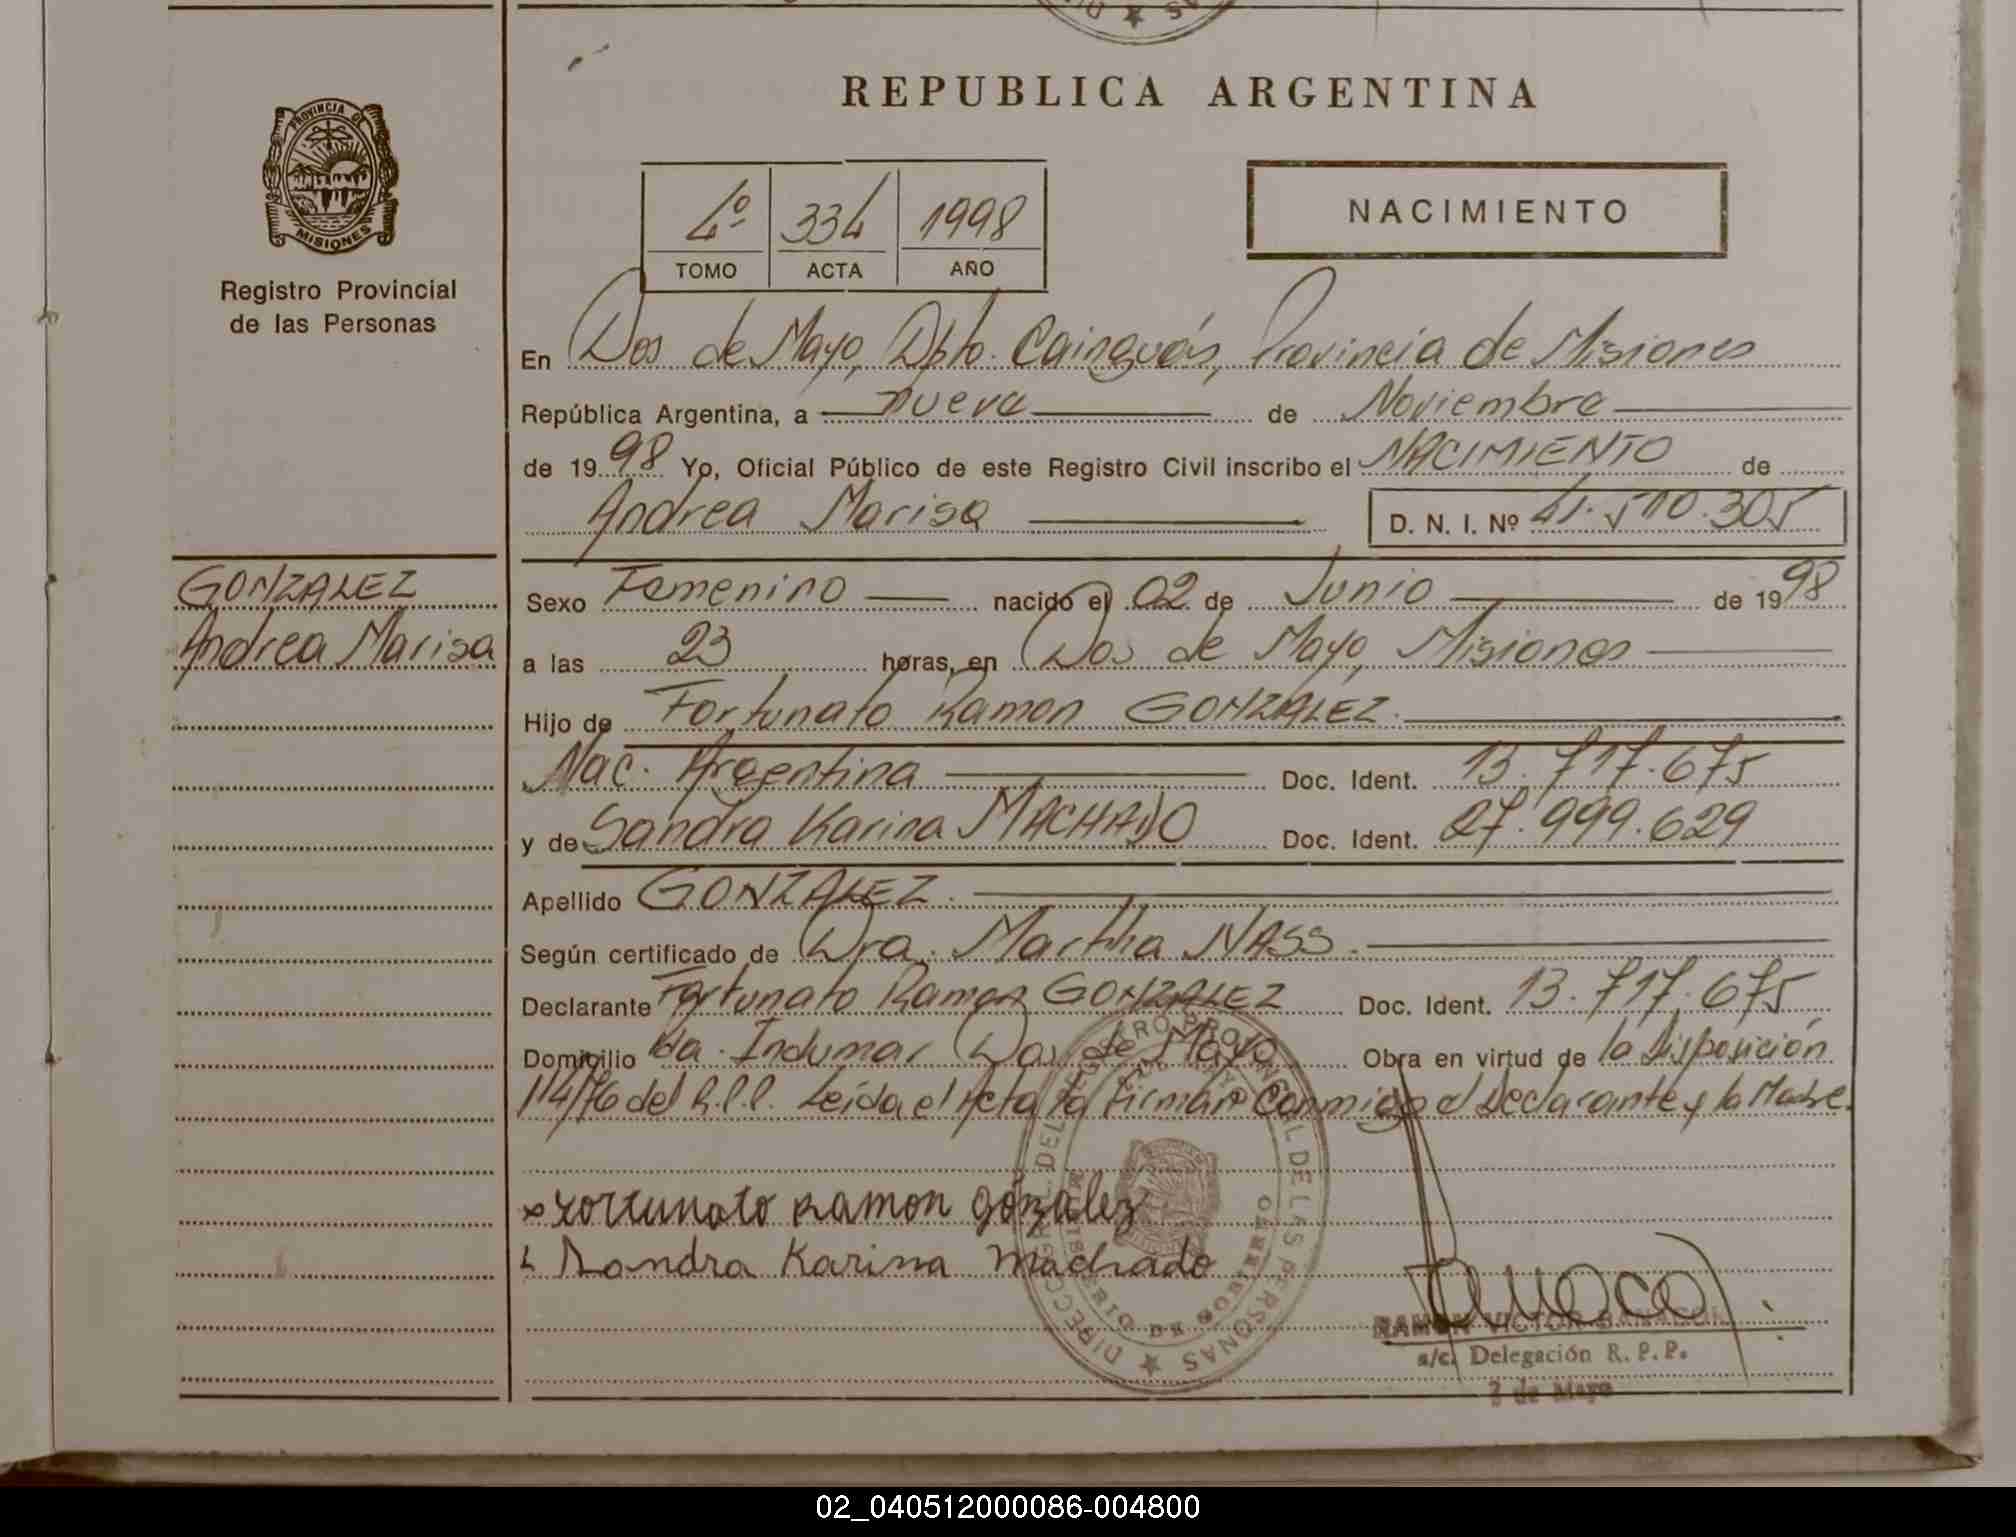 REPUBLICA ARGENTINA
PROVINCIA DE
MISIONES
Registro Provincial
de las Personas
4º 334 1998
TOMO ACTA AÑO
NACIMIENTO
En Dos de Mayo, Dpto. Cainguás, Provincia de Misiones
República Argentina, a nueve de Noviembre
de 1998 Yo, Oficial Público de este Registro Civil inscribo el NACIMIENTO de
Andrea Marisa D. N. I. Nº 41.510.305
GONZALEZ
Andrea Marisa
Sexo Femenino nacido el 02 de Junio de 1998
a las 23 horas, en Dos de Mayo, Misiones
Hijo de Fortunato Ramon GONZALEZ.
Nac. Argentina Doc. Ident. 13.717.675
y de Sandra Karina MACHADO Doc. Ident. 27.999.629
Apellido GONZALEZ.
Según certificado de Dra. Martha NASS.
Declarante Fortunato Ramon GONZALEZ Doc. Ident. 13.717.675
Domicilio Indumar Dos de Mayo Obra en virtud de la Disposición
114/76 del R.P.P. Leída el Acta la firman conmigo el Declarante y la Madre.
Fortunato Ramon González
Sandra Karina Machado
RAMON VICTOR
a/c. Delegación R. P. P.
2 de Mayo
02_040512000086-004800